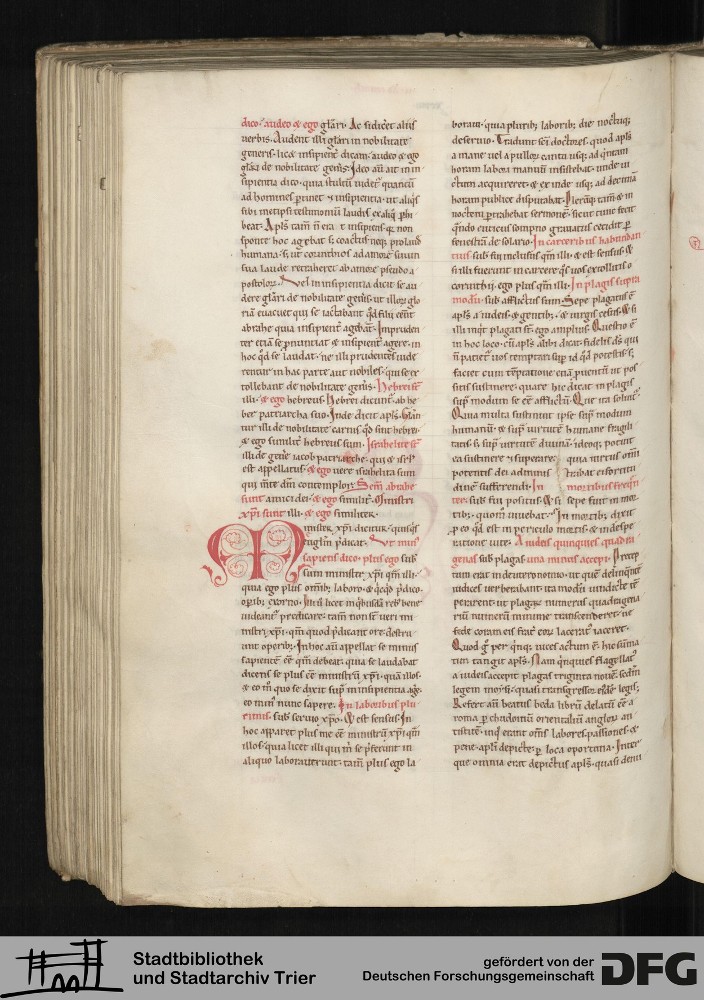 dico. audeo & ego glari. Ac si dicet aliis
uerbis. Audent illi glari in nobilitate
generis. licet insipient dicam. audeo & ego
glari de nobilitate genis. Ideo au ait in in
sipientia dico. quia stultu
ad homines ptinet & insipientia. ut aliqs
sibi metipsi testimoniu laudis
beat. Apls tam n erat insipiens. q non
sponte hoc agebat s; coactus. neq; p laude
humana. s; ut corinthios ad amore suum
sua laude retraheret ab amore pseudo a
postolor. Vel in insipientia dicit se au
dere glari de nobilitate genis. ut illor glo
ria euacuet qui se iactabant qd filii eent
abrahe quia insipient agebat. Impruden
ter etia se pnuntiat & insipient agere. in
hoc qd se laudat. ne illi prudentes iude
rentur in hac parte aut nobiles. qui se ex
tollebant de nobilitate genis. Hebrei st
illi. & ego hebreus. Hebrei dicunt ab he
ber patriarcha suo. Inde dicit apls. Glan
tur illi de nobilitate carnis qd sint hebrei.
& ego similit hebreus sum. Israhelite st
illi de gene iacob patriarche. qui & isrl
est appellatus. & ego uere israhelita sum
qui mte dm contemplor. Sem abrahe
sunt amici dei. & ego similit. Ministri
xpi sunt illi. & ego similiter.
Minister xpi dicitur. quisqs
euglm pdicat. Vt min
sapiens dico. plus ego sub
sum ministr xpi qm illi.
quia ego plus omib; laboro. & qcqd pdico.
opib; exorno. Illi licet in qbusda reb; bene
uideant predicare. tam non st ueri mi
nistri xpi. qm quod pdicant ore. destru
unt operib;. In hoc au appellat se minus
sapiente ee qm debeat. quia se laudabat
dicens se plus ee ministru xpi. qua illos.
& eo m quo se dixit sup in insipientia age.
eo min nunc sapere. In laborib; plu
rimis. sub seruio xpo. & est sensus. In
hoc apparet plus me ee ministru xpi qm
illos. quia licet illi qui m se pferunt in
aliquo laborauerunt. tam plus ego la
boraui. quia plurib; laborib; die noctuq;
deseruio. Tradunt sci doctores. quod apls
a mane uel a pullor cantu usq; ad qntam
horam labori manuu insistebat. unde ui
ctum acquireret. & ex inde usq; ad decima
horam publice disputabat. Plerūq; tam & in
noctem ptrahebat sermone. sicut tunc fecit
qndo euticus somno grauatus cecidit p
fenestra de solario. In carcerib; habundan
tius sub fui inclusus qm illi. & est sensus. &
si illi fuerunt in carcere qs uos extollitis o
corinthii. ego plus qm illi. In plagis supra
modu. sub afflictus sum. Sepe plagatus e
apls a iudeis & gentib;. & uirgis cesus. & si
illi inqt plagati st. ego amplius. Questio e
in hoc loco. cu apls alibi dicat. fidelis ds qui
n patiet uos temptari sup id qd potestis. s;
faciet cum teptatione etia puentu ut pos
sitis sustinere. quare hic dicat in plagis
sup modum se ee afflictu. Que ita soluit.
Quia multa sustinuit ipse sup modum
humanu. & sup uirtute humane fragili
tatis. s; sup uirtute diuina. ideoq; potuit
ea sustinere & superare. quia uirtus omi
potentis dei adminis trabat ei fortitu
dine sufferendi. In mortibus freqn
ter. sub fui positus. & si sepe fuit in mor
tib;. quom uiuebat. In mortib; dixit
p eo qd est in periculo mortis. & in despe
ratione uite. A iudeis quinquies quadra
genas sub plagas. una minus accepi. Precep
tum erat in deuteronomio. ut que delinquente
iudices uerberabant. ita modu uindicte te
perarent. ut plagar numerus quadragena
riu numeru minime transcenderet. ne
fede coram eis frat eor lacerat iaceret.
Quod g per qnq; uices actum e. hic suma
tim tangit apls. Nam qnquies flagellat
a iudeis accepit plagas triginta noue. sedm
legem moysi. quasi transgressor eorde legis.
Refert au beatus beda libru delatu ee a
roma p chadonu orientaliu anglor an
tistite. inq erant oms labores. passiones. &
pene apli depicte. p loca oportuna. Inter
que omnia erat depictus apls. quasi denu
Stadtbibliothek
und Stadtarchiv Trier
gefördert von der
Deutschen Forschungsgemeinschaft
DFG